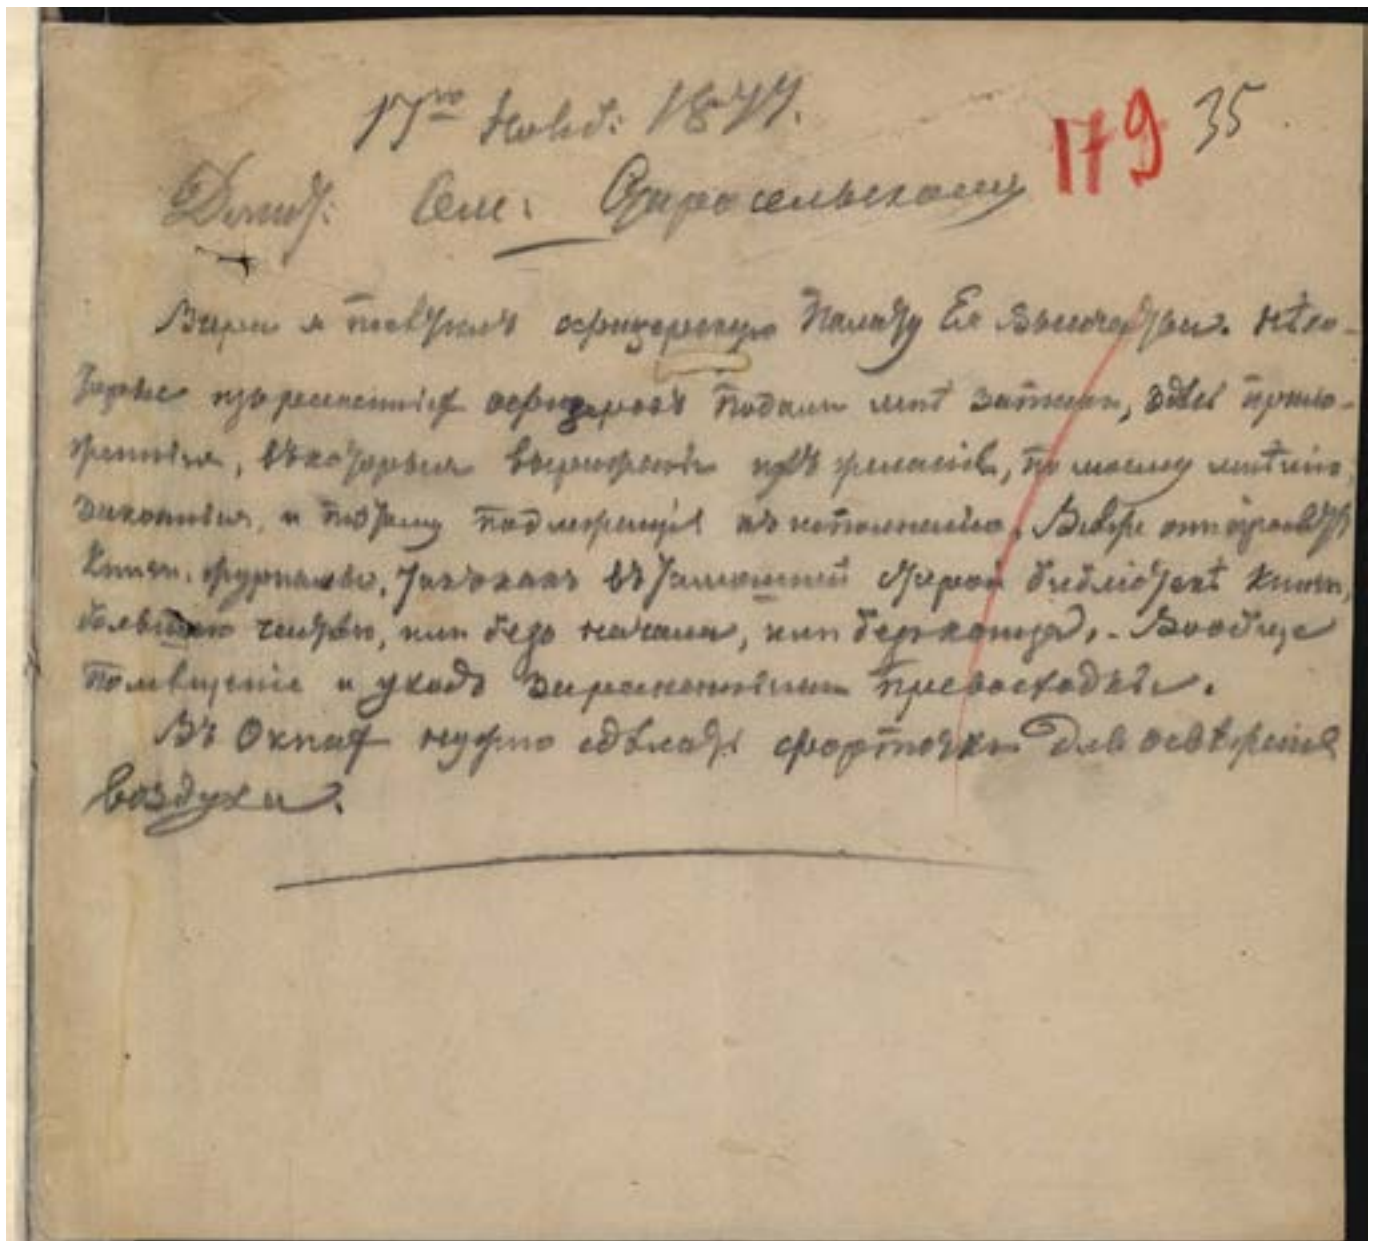 17го Нояб: 1877.
179 35
Дмит: Сем: Царосельскому
Вчера я посѣтилъ офицерскую Палату Ея Высочества. Нѣко-
торые изъ раненныхъ офицеровъ подали мнѣ записки, здѣсь прило-
женныя, въ которыя выражены ихъ желанія, по моему мнѣнію,
законныя, и потому подлежащія къ исполненію.
Книги, журналы, такъ какъ въ тамошней старой библіотекѣ книги,
большею частью, или безъ начала, или безъ конца. - Вообще
помѣщеніе и уходъ за раненными превосходны.
Въ Окнахъ нужно сдѣлать форточки для освѣженія
воздуха.